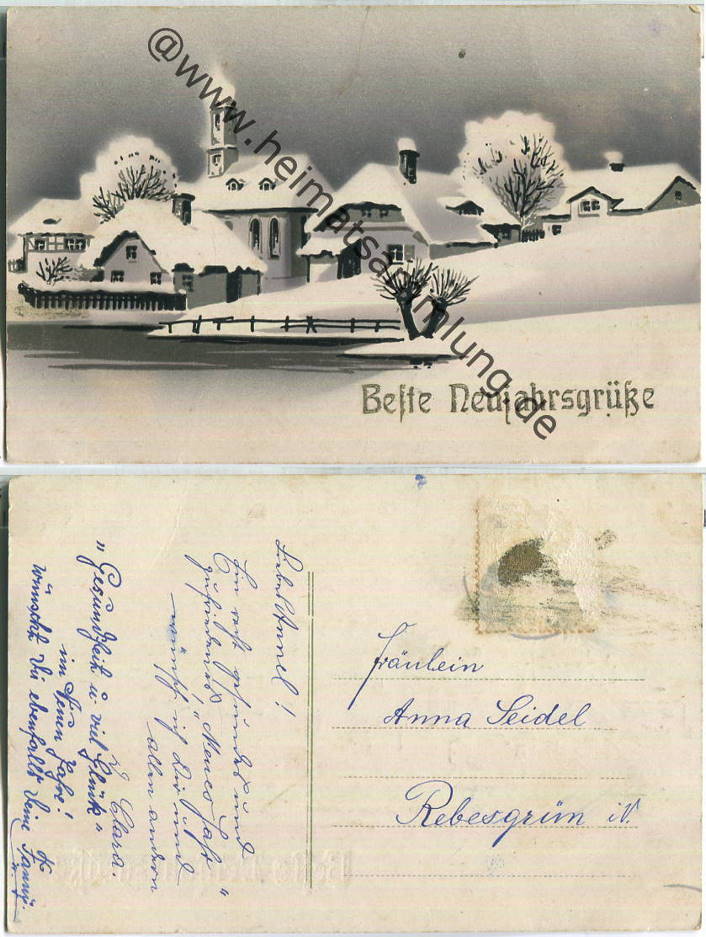 @www.heimatsammlung.de
Beste Neujahrsgrüße
Liebe Annel!
Ein recht gesundes und
zufriedenes "Neues Jahr"
wünscht ich Dir und
allen andern
D. Clara
"Gesundheit u. viel Glück"
im Neuen Jahre!
wünscht Dir ebenfalls Deine Fanny.
Fräulein
Anna Seidel
Rebesgrün i/V.